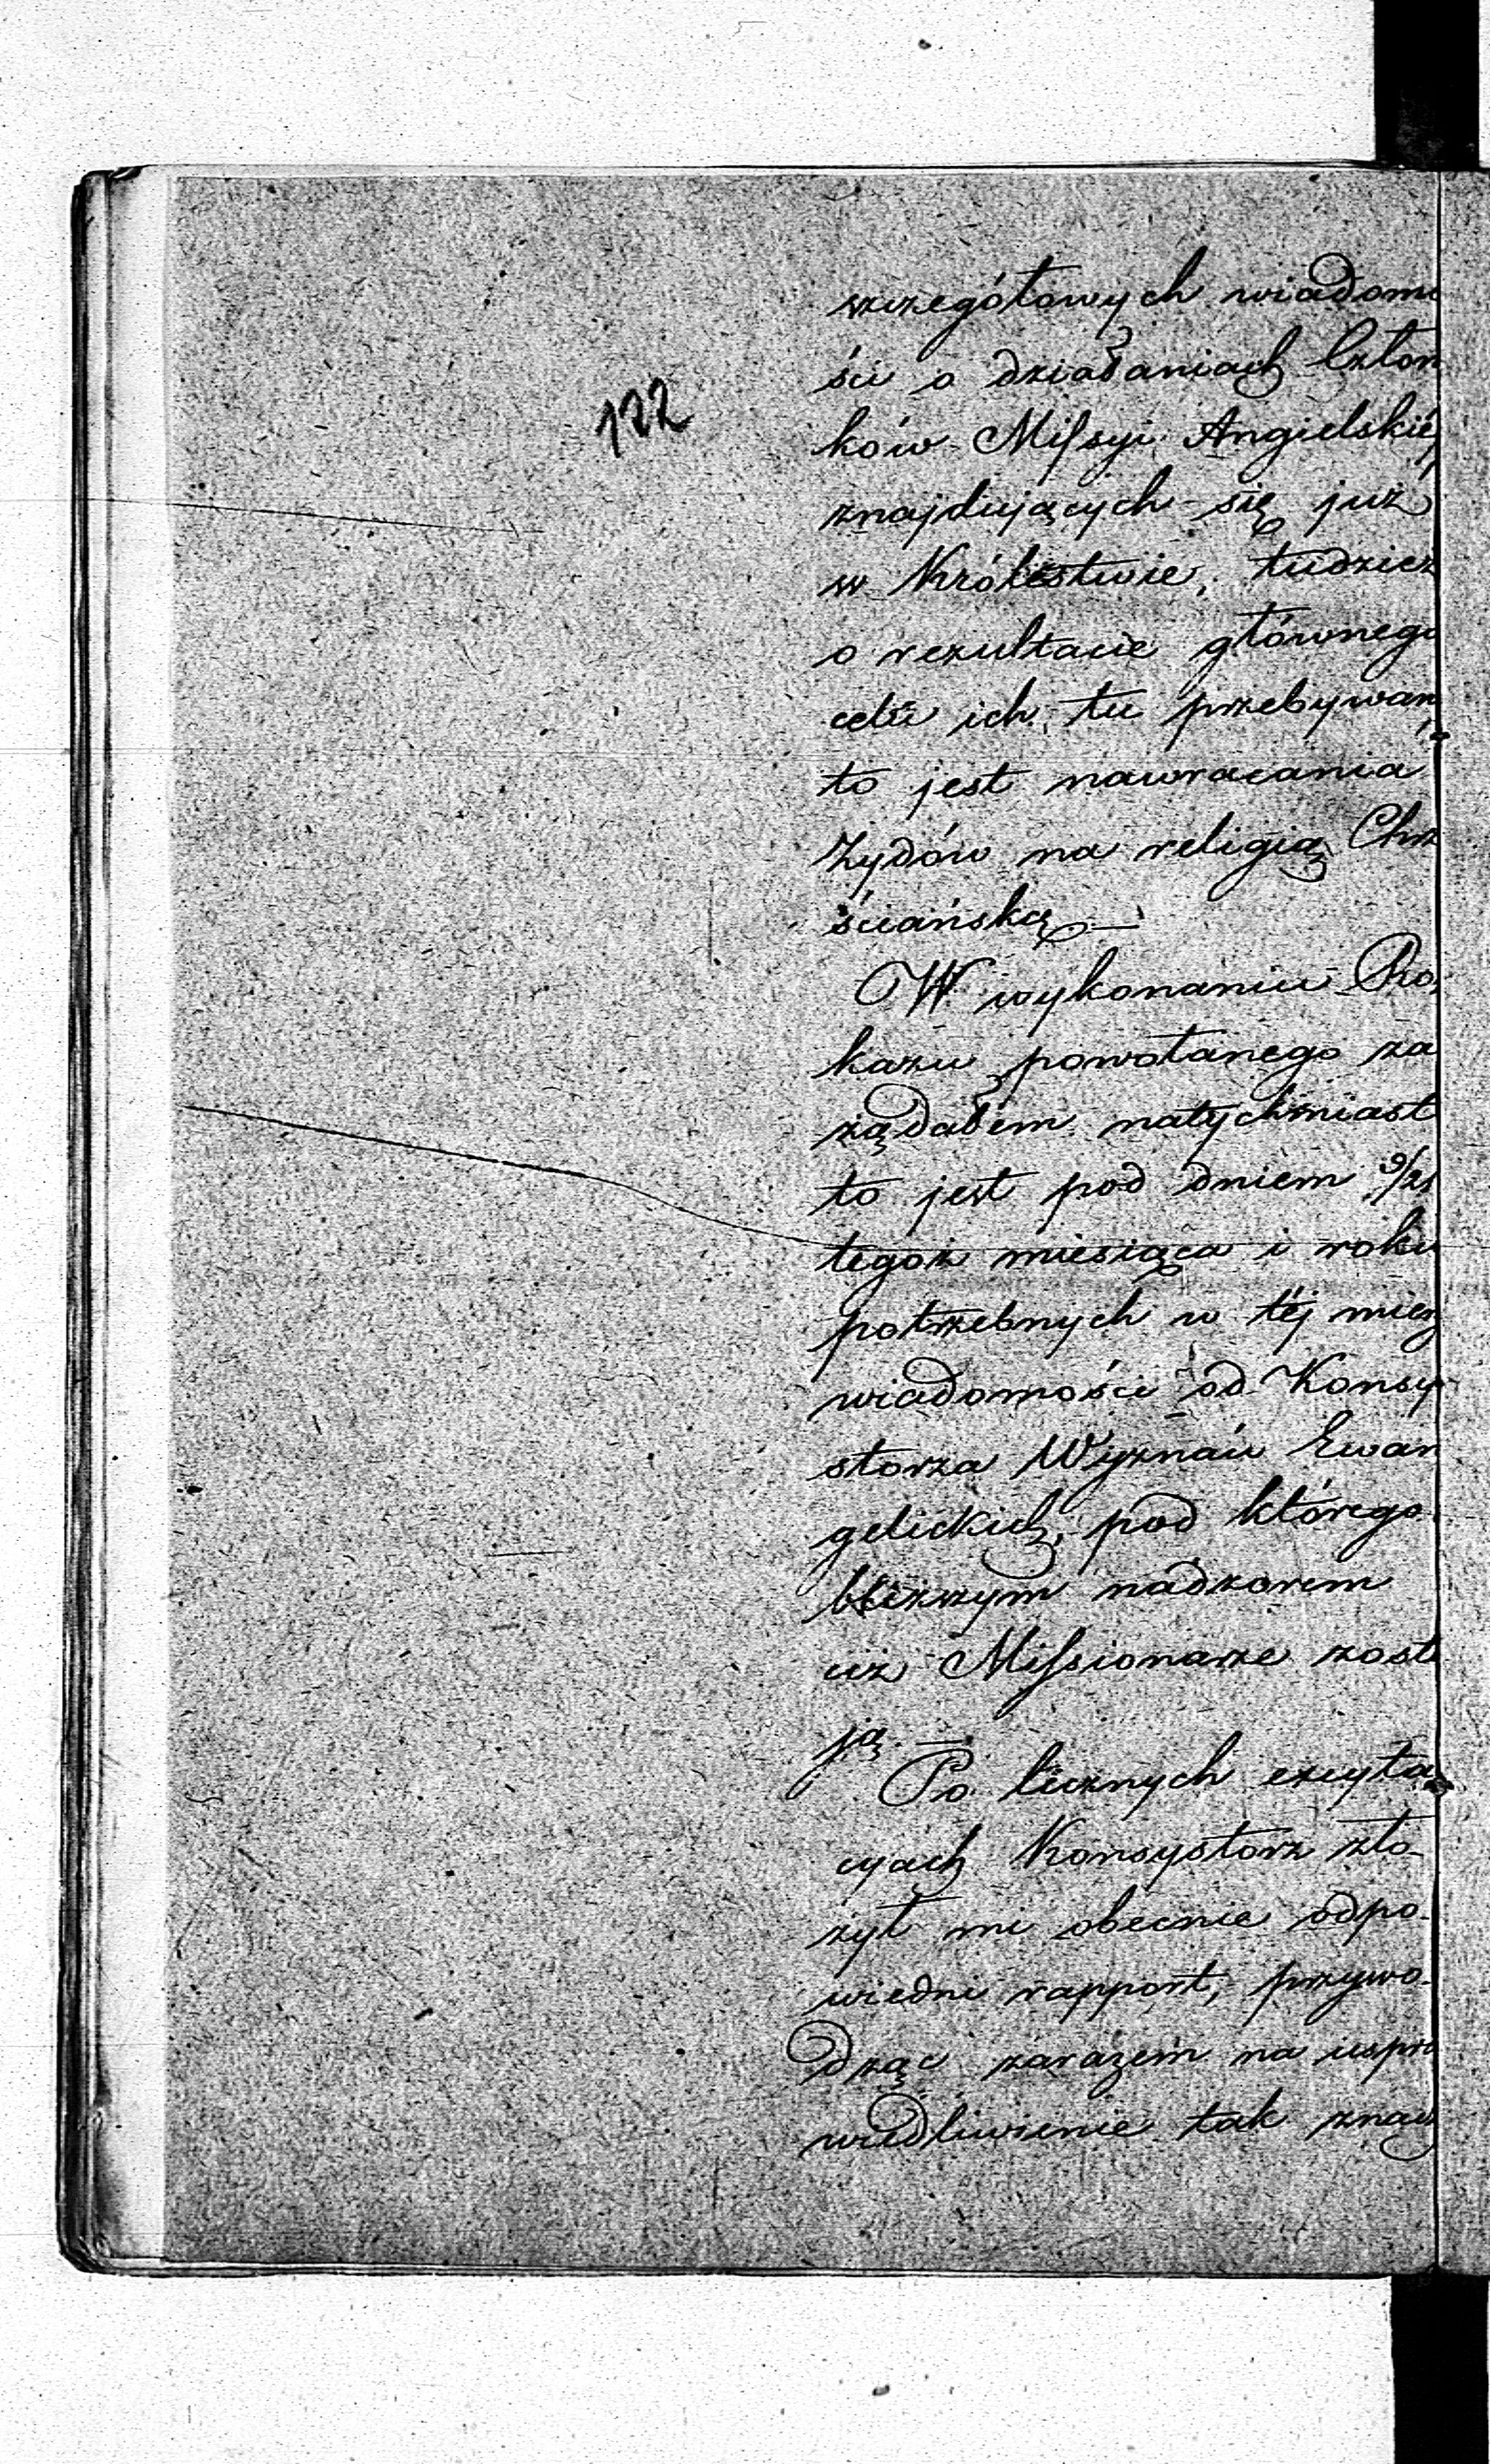 122
szczegółowych wiadomo
ści o działaniach Człon
ków Missyi Angielskiéj
znajdujących się już
w Królestwie, tudzież
o rezultacie głównego
celu ich tu przebywan
to jest nawracania
Żydów na religią Chrz
ściańską —
W wykonaniu Roz
kazu powołanego za
żądałem natychmiast
to jest pod dniem 9/21
tegoż miesiąca i roku
potrzebnych w téj mierz
wiadomości od Konsy
storza Wyznań Ewan
gelickich, pod którego
bliższym nadzorem
ciż Missionarze zosta
ją. —
Po licznych excyta
cyach Konsystorz zło-
żył mi obecnie odpo-
wiedni rapport, przywo-
dząc zarazem na uspra
wiedliwienie tak znacz